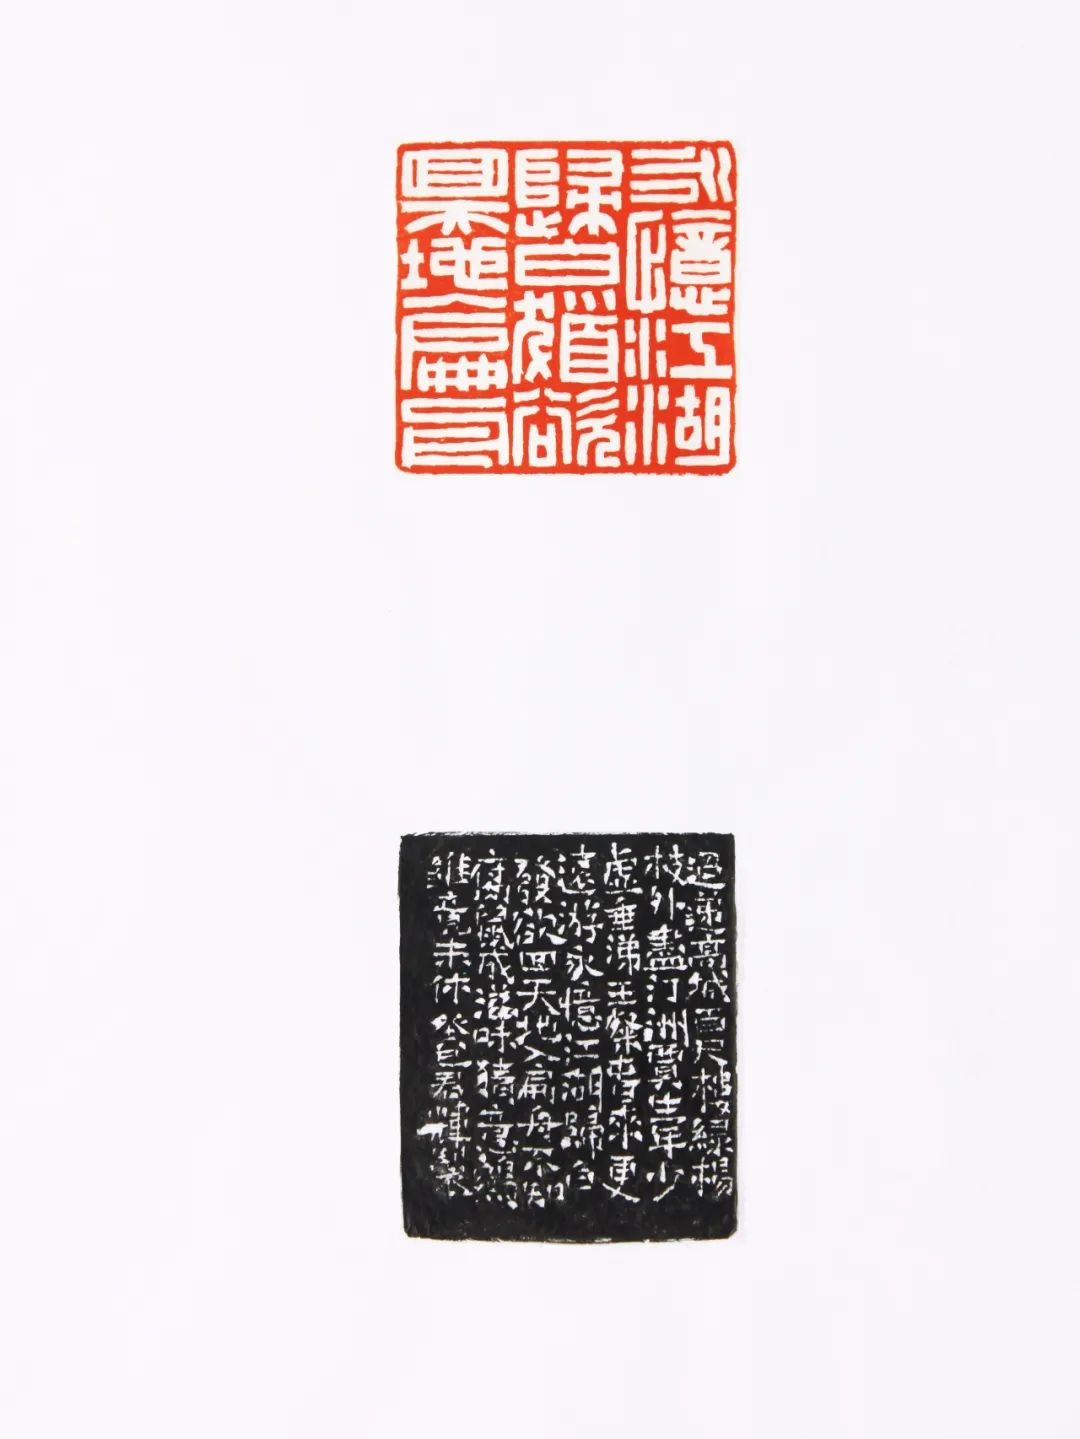 永憶江湖
歸白髮欲
回天地入扁舟
迢遞高城百尺樓綠楊
枝外盡汀洲賈生年少
虛垂涕王粲春來更
遠游永憶江湖歸白
發欲回天地入扁舟不知
腐鼠成滋味猜意鵷
雛竟未休 君輝製